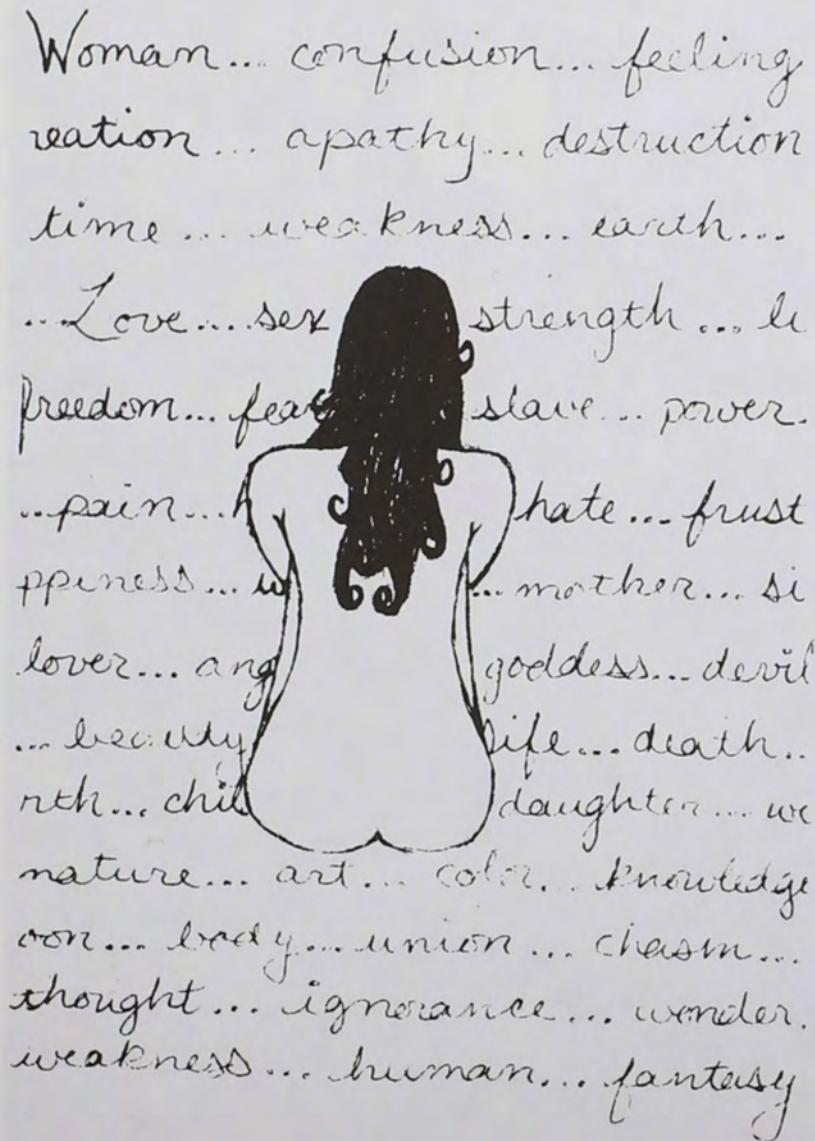 Woman... confusion... feeling
reation... apathy... destruction
time... weakness... earth...
...Love....sex strength... li
freedom... fear slave... power.
...pain...h hate... frust
ppiness... w ... mother... si
lover... ang goddess... devil
... beauty life... death..
rth... chil daughter... we
nature... art... color... knowledge
oon... body... union... chasm...
thought... ignorance... wonder.
weakness... human... fantasy